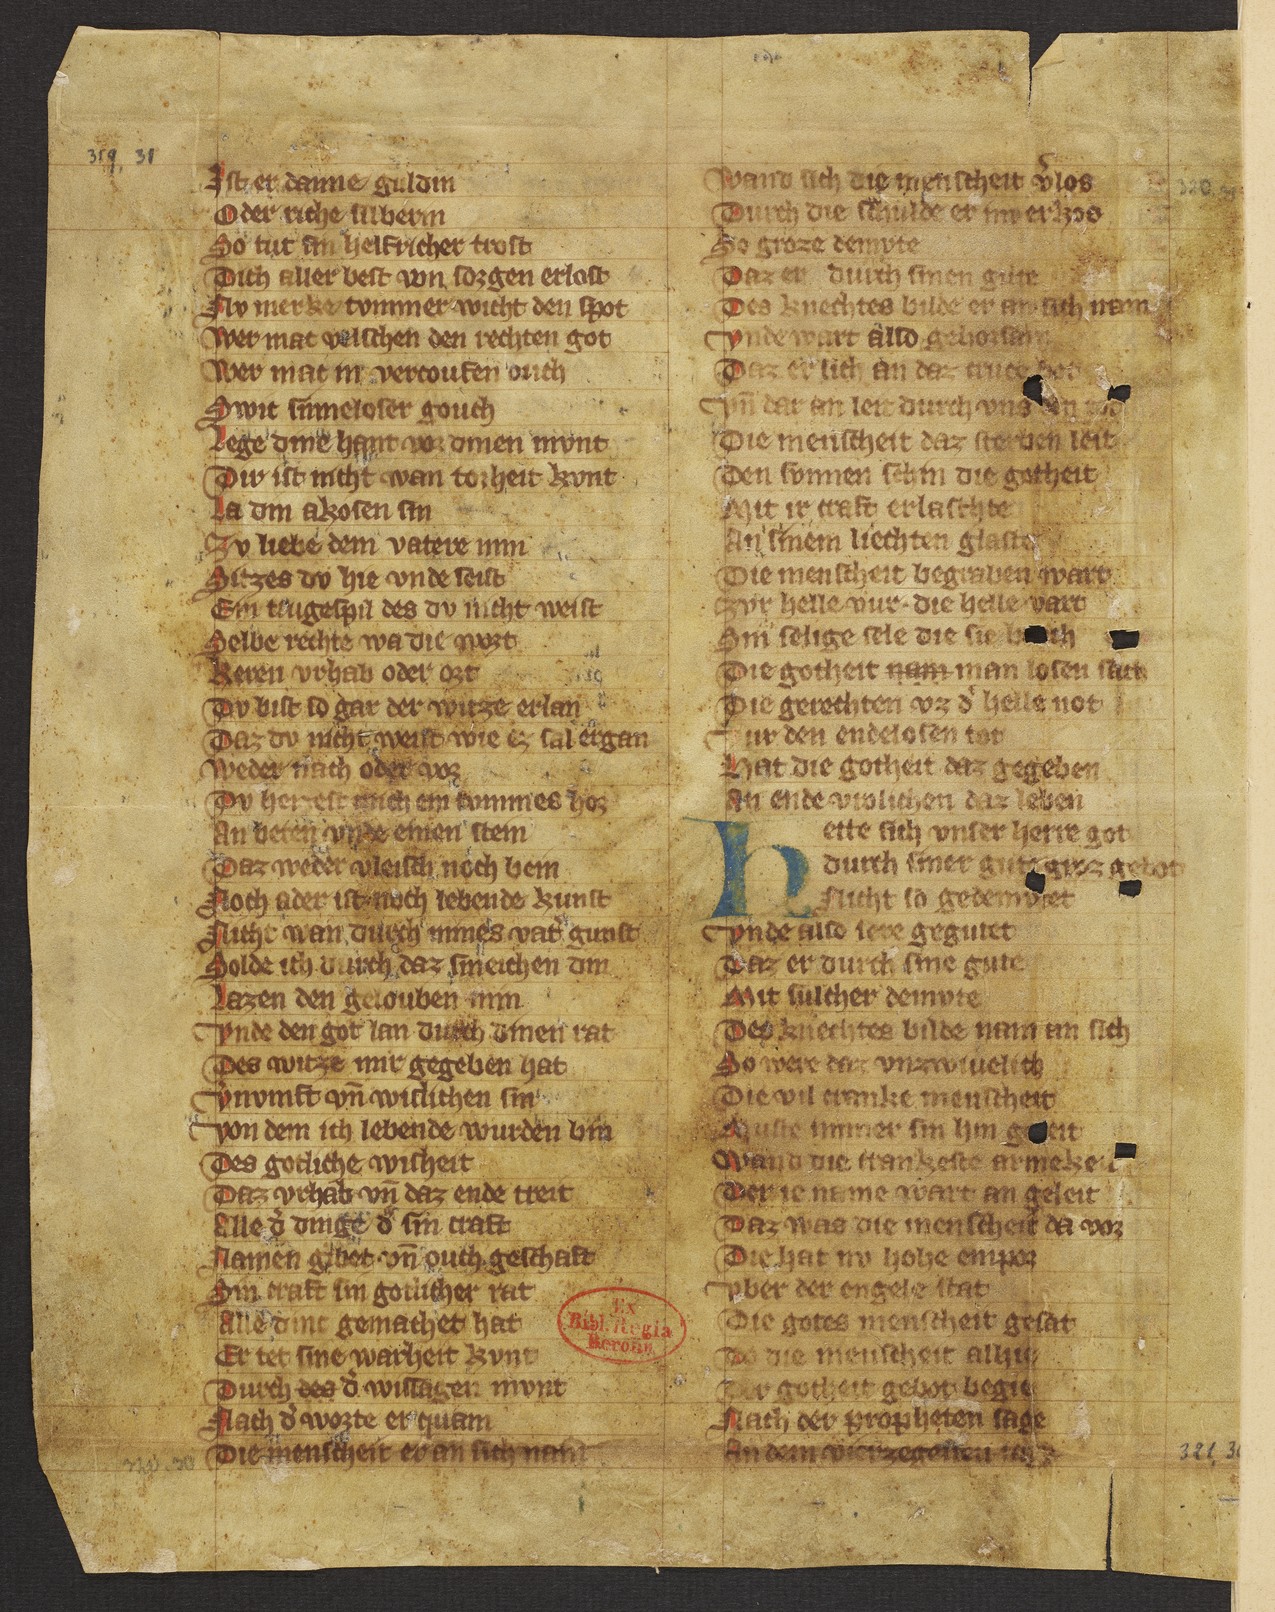 319, 31
Ist er danne guldin
Oder riche silberin
So tut sin helfricher trost
Dich aller best von sorgen erlost
Nv merke tvmmer wicht den spot
Wer mac velschen den rechten got
Wer mac in vercoufen ouch
Swic sinneloser gouch
Lege dine hant vor dinen mvnt
Dir ist nicht wan torheit kvnt
La din akosen sin
Zv liebe dem vatere min
Sitzes dv hie vnde seist
Ein trugespil des dv nicht weist
Selbe rechte wa die wort
Keren vrhab oder ort
Dv bist so gar der witze erlan
Daz dv nicht weist wie ez sal ergan
Weder nach oder vor
Dv heizest mich ein tvmmes hor
An beten vnde einen stein
Daz weder vleisch noch bein
Noch ader ist noch lebende kunst
Nicht wan durch mines vat̓ gunst
Solde ich durch daz smeichen din
Lazen den gelouben min
Vnde den got lan durch dinen rat
Des witze mir gegeben hat
Vnvmft vn̄ wislichen sin
Von dem ich lebende wurden bin
Des gotliche wisheit
Daz vrhab vn̄ daz ende treit
Elle d̓ dinge d̓ sin craft
Namen gibet vn̄ ouch geschaft
Sin craft sin gotlicher rat
Alle dinc gemachet hat
Er tet sine warheit kvnt
Durch des d̓ wissagen mvnt
Nach d̓ worte er quam
Die menscheit er an sich nam
Ex
Bibl. Regia
Berolin.
Wand sich die menscheit v̓los
Durch die schulde er im erkos
So groze demvte
Daz er durch sinen gute
Des knechtes bilde er an sich nam
Vnde wart also gehorsam
Daz er sich an daz cruce bot
Vn̄ dar an leit durch vns den tot
Die menscheit daz sterben leit
Den svnnen schin die gotheit
Mit ir craft erlaschte
An sinem liechten glaste
Die menscheit begraben wart
Zvr helle vur die helle vart
Sin selige sele die sie brach
Die gotheit nam man losen sach
Die gerechten vz d̓ helle not
Vur den endelosen tot
Hat die gotheit daz gegeben
An ende vrolichen daz leben
hette sich vnser herre got
durch siner gute groz gebot
Nicht so gedemvtet
Vnde also sere gegutet
Daz er durch sine gute
Mit sulcher demvte
Des knechtes bilde nam an sich
So were daz vnzwiuelich
Die vil cranke menscheit
Muste immer sin hin geleit
Wand die crankeste armekeit
Der ie name wart an geleit
Daz was die menscheit da vor
Die hat nv hohe empor
Vber der engele stat
Die gotes menscheit gesat
Do die menscheit allhie
Der gotheit gebot begie
Nach der propheten sage
An dem vierzegesten tage